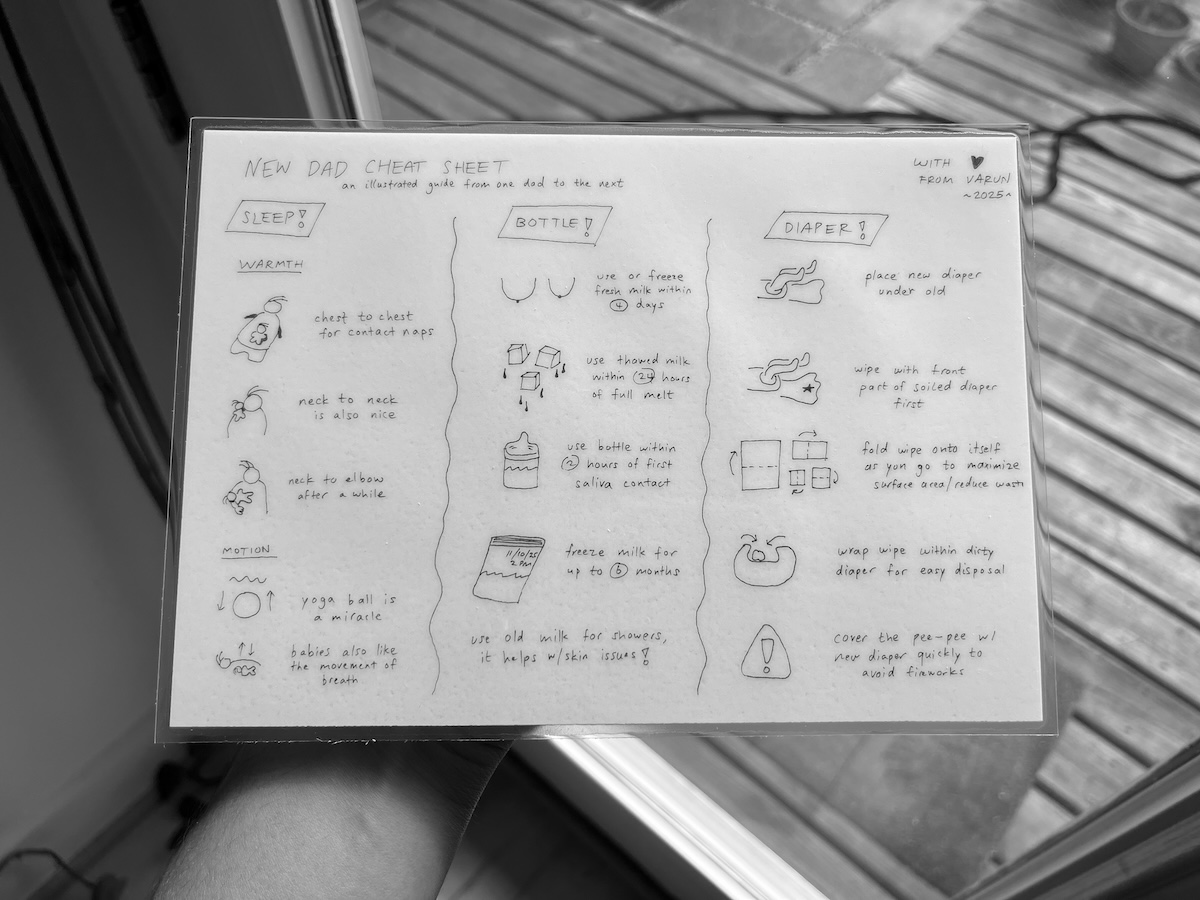 NEW DAD CHEAT SHEET
an illustrated guide from one dad to the next
WITH ♥
FROM VARUN
~2025~
SLEEP!
WARMTH
chest to chest
for contact naps
neck to neck
is also nice
neck to elbow
after a while
MOTION
yoga ball is
a miracle
babies also like
the movement of
breath
BOTTLE!
use or freeze
fresh milk within
4 days
use thawed milk
within 24 hours
of full melt
use bottle within
2 hours of first
saliva contact
11/10/25
2 PM
freeze milk for
up to 6 months
use old milk for showers,
it helps w/skin issues!
DIAPER!
place new diaper
under old
wipe with front
part of soiled diaper
first
fold wipe onto itself
as you go to maximize
surface area/reduce waste
wrap wipe within dirty
diaper for easy disposal
!
cover the pee-pee w/
new diaper quickly to
avoid fireworks